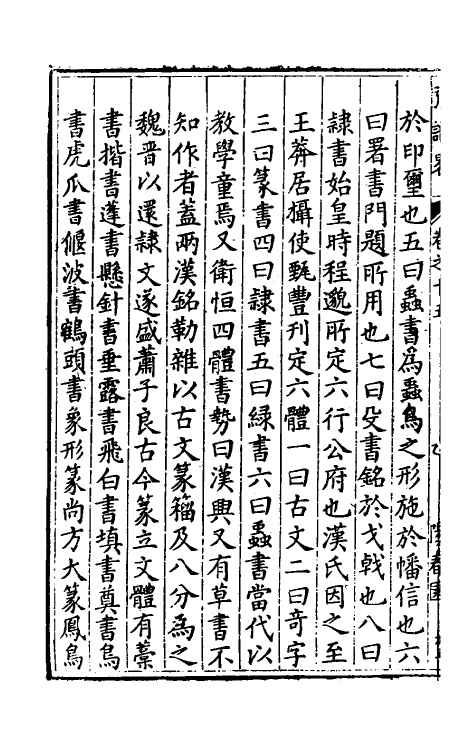 於印璽也五曰蟲書為蟲鳥之形施於幡信也六
曰署書門題所用也七曰殳書銘於戈戟也八曰
隷書始皇時程邈所定六行公府也漢氏因之至
王莽居攝使甄豐刋定六體一曰古文二曰竒字
三曰篆書四曰隷書五曰緑書六曰蟲書當代以
教學童焉又衛恒四體書勢曰漢興又有草書不
知作者蓋兩漢銘勒雜以古文篆籀及八分為之
魏晋以還隷文遂盛蕭子良古今篆立文體有藁
書揩書蓬書懸針書垂露書飛白書填書奠書鳥
書虎爪書偃波書鶴頭書象形篆尚方大篆鳳鳥
卷之十五